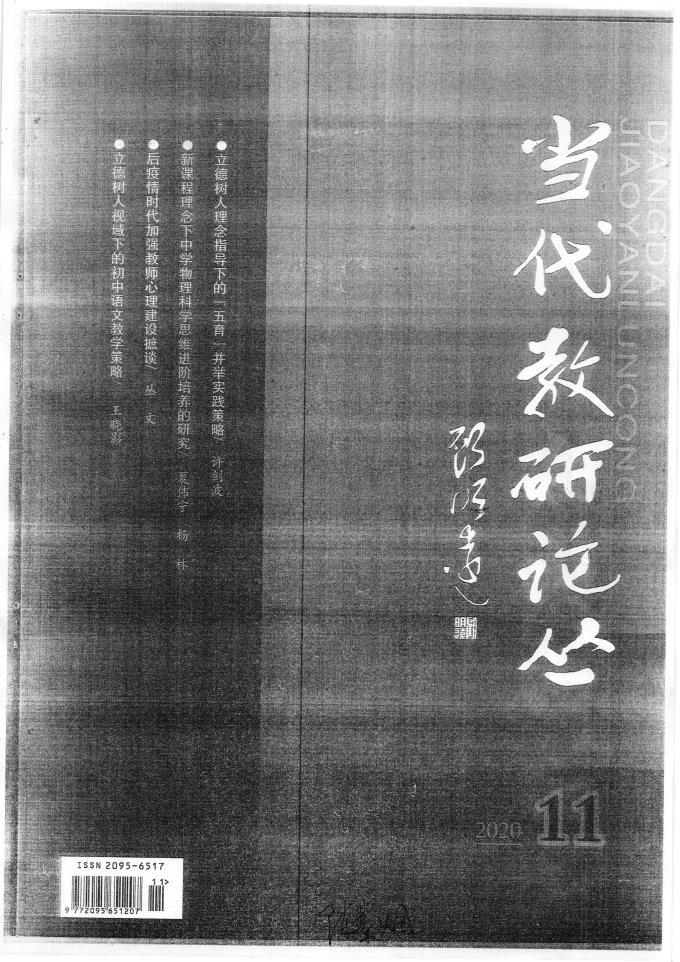 DANGDAI
JIAOYANLUNCONG
当代教研论丛
顾明远
●立德树人理念指导下的「五育」并举实践策略/许剑波
●新课程理念下中学物理科学思维进阶培养的研究/夏伟宁 杨 林
●后疫情时代加强教师心理建设摭谈/丛 文
●立德树人视域下的初中语文教学策略/王晓影
2020 11
ISSN 2095-6517
11>
9 772095 651207